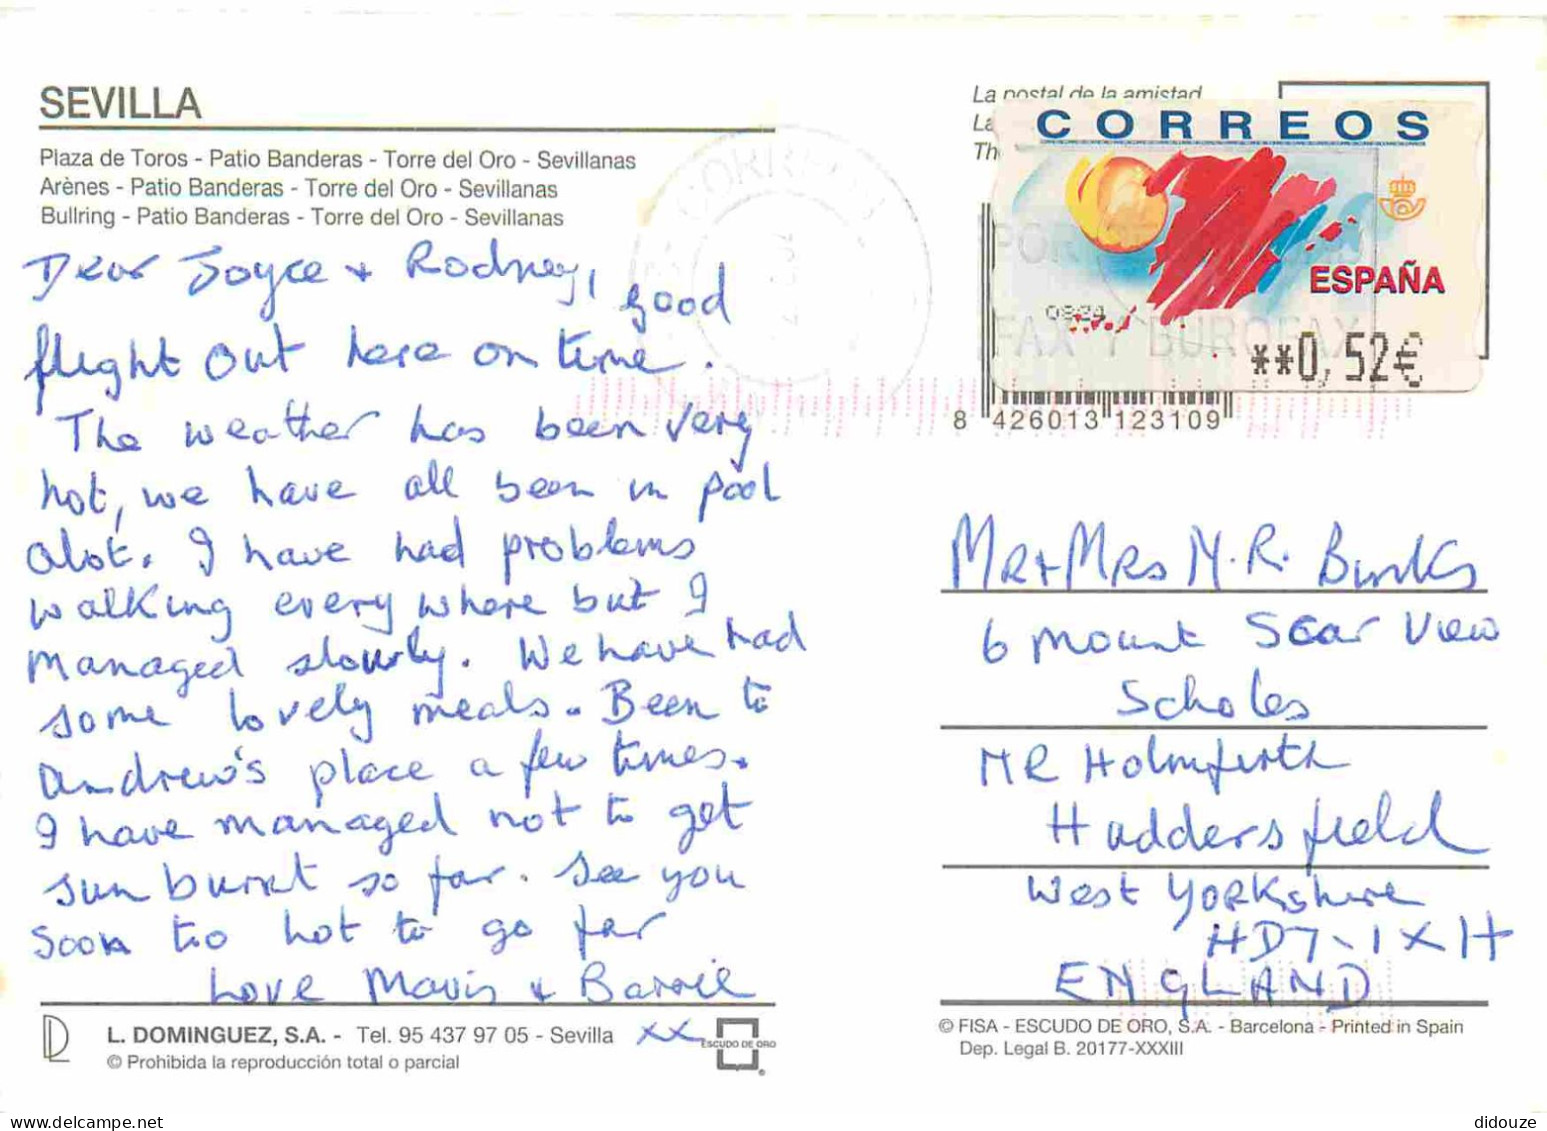 SEVILLA
Plaza de Toros - Patio Banderas - Torre del Oro - Sevillanas
Arènes - Patio Banderas - Torre del Oro - Sevillanas
Bullring - Patio Banderas - Torre del Oro - Sevillanas
Dear Joyce + Rodney, good
flight out here on time.
The weather has been very
hot, we have all been in pool
alot. I have had problems
walking every where but I
managed slowly. We have had
some lovely meals. Been to
Andrew's place a few times.
I have managed not to get
sun burnt so far. See you
soon too hot to go far
Love Mavis + Barrie
xx
L. DOMINGUEZ, S.A. - Tel. 95 437 97 05 - Sevilla
© Prohibida la reproducción total o parcial
ESCUDO DE ORO
®
La postal de la amistad
La
Th
CORREOS
ESPAÑA
0824
**0,52€
CORREOS
POR
FAX Y BUROFAX
8 426013 123109
MR + MRS M. R. 
6 Mount Scar View
Scholes
NR Holmfirth
Huddersfield
West Yorkshire
HD7-1XH
ENGLAND
© FISA - ESCUDO DE ORO, S.A. - Barcelona - Printed in Spain
Dep. Legal B. 20177-XXXIII
delcampe.net
didouze